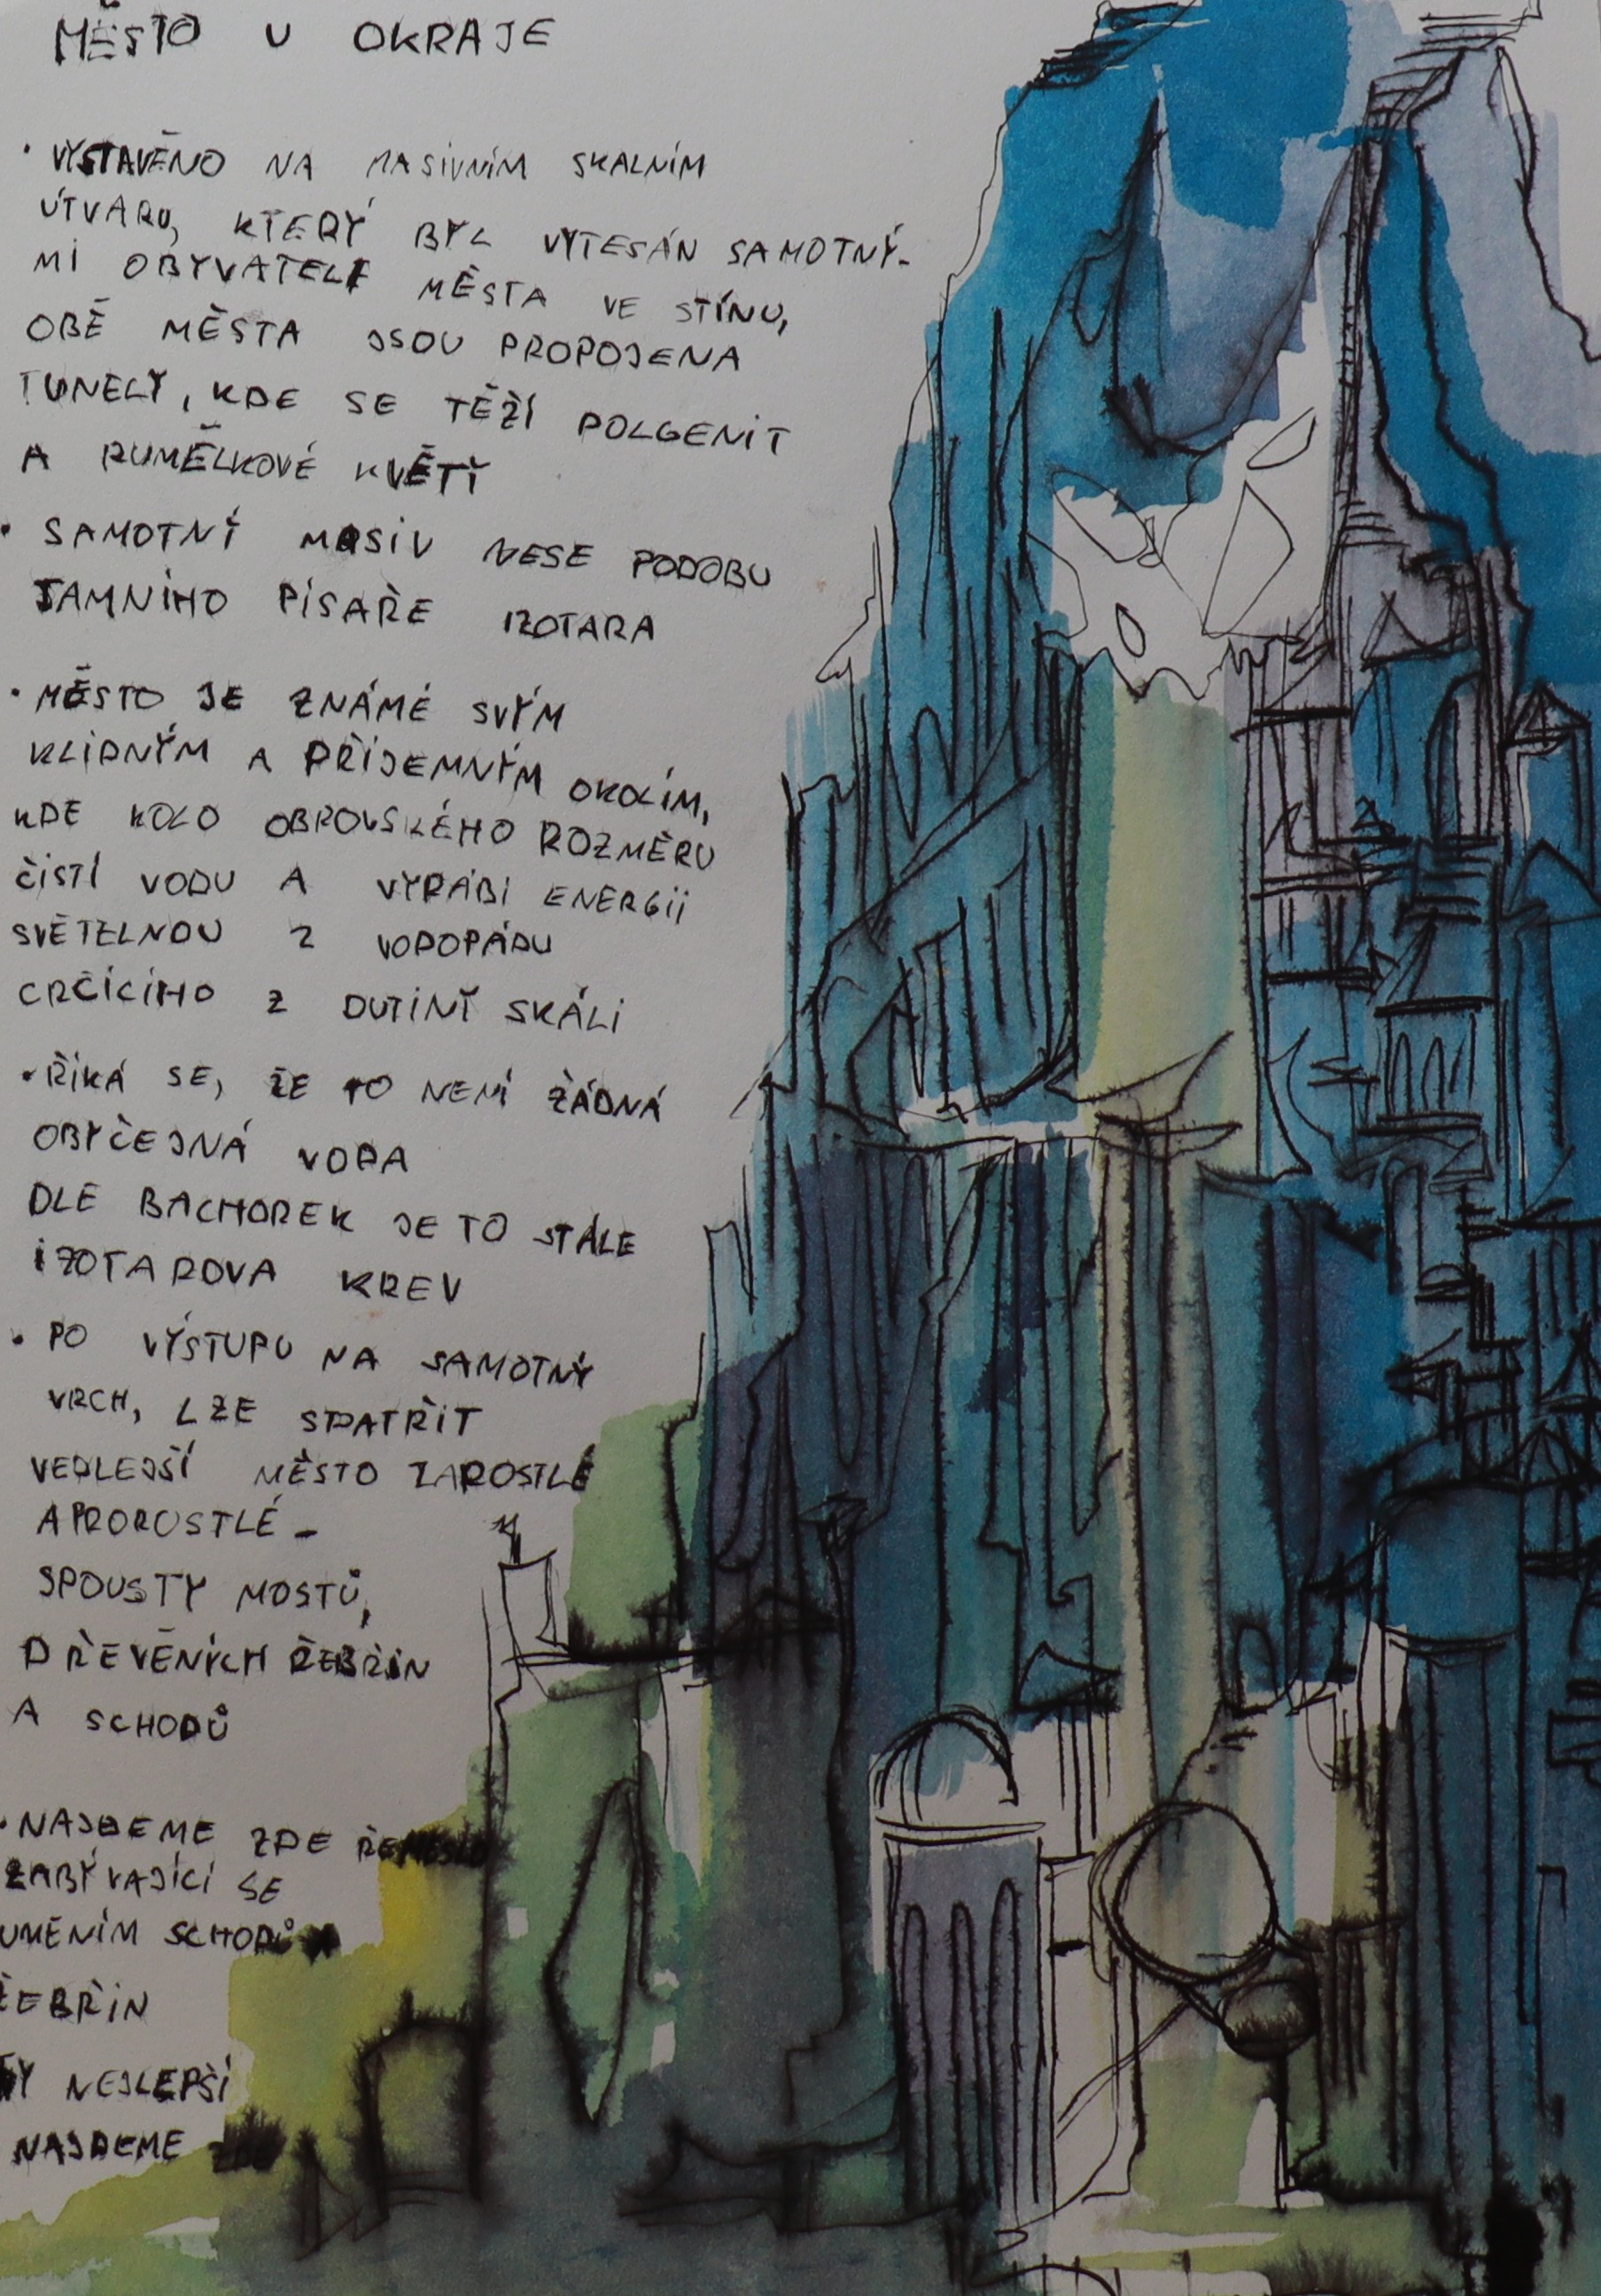 MĚSTO U OKRAJE
• VYSTAVĚNO NA MASIVNÍM SKALNÍM
ÚTVARU, KTERÝ BYL VYTESÁN SAMOTNÝ-
MI OBYVATELI MĚSTA VE STÍNU,
OBĚ MĚSTA JSOU PROPOJENA
TUNELY, KDE SE TĚŽÍ POLGENIT
A RUMĚLKOVÉ KVĚTY
• SAMOTNÝ MASIV NESE PODOBU
TAMNÍHO PÍSAŘE IZOTARA
• MĚSTO JE ZNÁMÉ SVÝM
KLIDNÝM A PŘÍJEMNÝM OKOLÍM,
KDE KOLO OBROVSKÉHO ROZMĚRU
ČISTÍ VODU A VYRÁBÍ ENERGII
SVĚTELNOU Z VODOPÁDU
CRČÍCÍHO Z DUTINY SKÁLI
• ŘÍKÁ SE, ŽE TO NENÍ ŽÁDNÁ
OBYČEJNÁ VODA
DLE BACHOREK JE TO STÁLE
IZOTAROVA KREV
• PO VÝSTUPU NA SAMOTNÝ
VRCH, LZE SPATŘIT
VEDLEJŠÍ MĚSTO ZAROSTLÉ
A PROROSTLÉ -
SPOUSTY MOSTŮ,
DŘEVĚNÝCH ŘEBŘIN
A SCHODŮ
• NAJDEME ZDE ŘEMESLO
ZABÝVAJÍCÍ SE
UMĚNÍM SCHODŮ A
ŽEBŘIN
TY NEJLEPŠÍ
NAJDEME ZDE